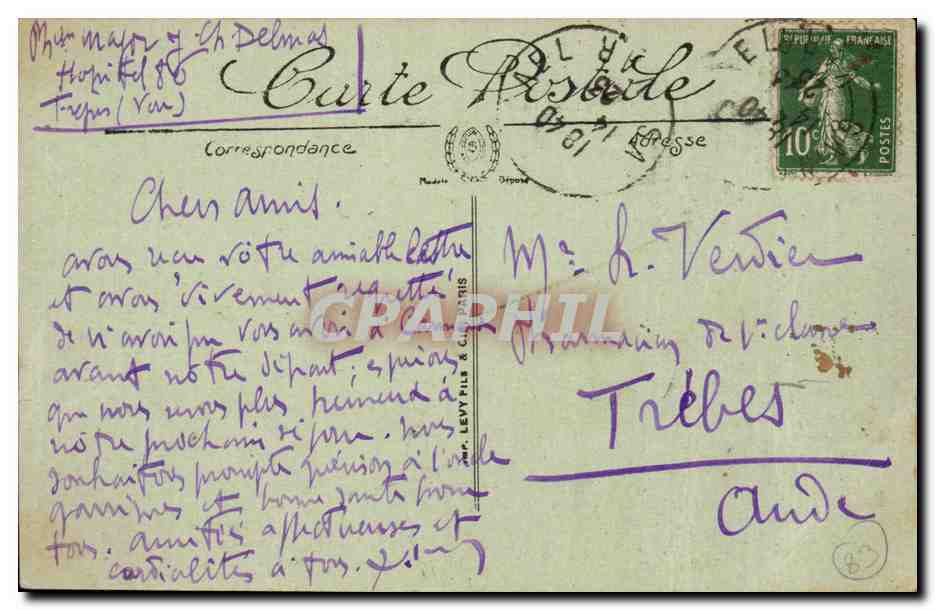 Major Ch Delmas
Hopital 86
(Var)
Carte Postale
Correspondance
Adresse
Modèle Déposé
REPUBLIQUE FRANÇAISE
10c
POSTES
18 40
14
Chers amis.
avons reçu vôtre aimable lettre
et avons vivement regretté
de n'avoir pu vous avoir à
avant nôtre départ; espérons
que nous serons plus heureux à
nôtre prochain séjour. nous
souhaitons prompte guérison à l'oncle
et bonne santé pour
tous. amitiés affectueuses et
cordialités à tous.
IMP. LEVY FILS & CIE PARIS
CPAPHIL
Mr. L. Verdier
Pharmacien de 1re classe
Trèbes
Aude
83